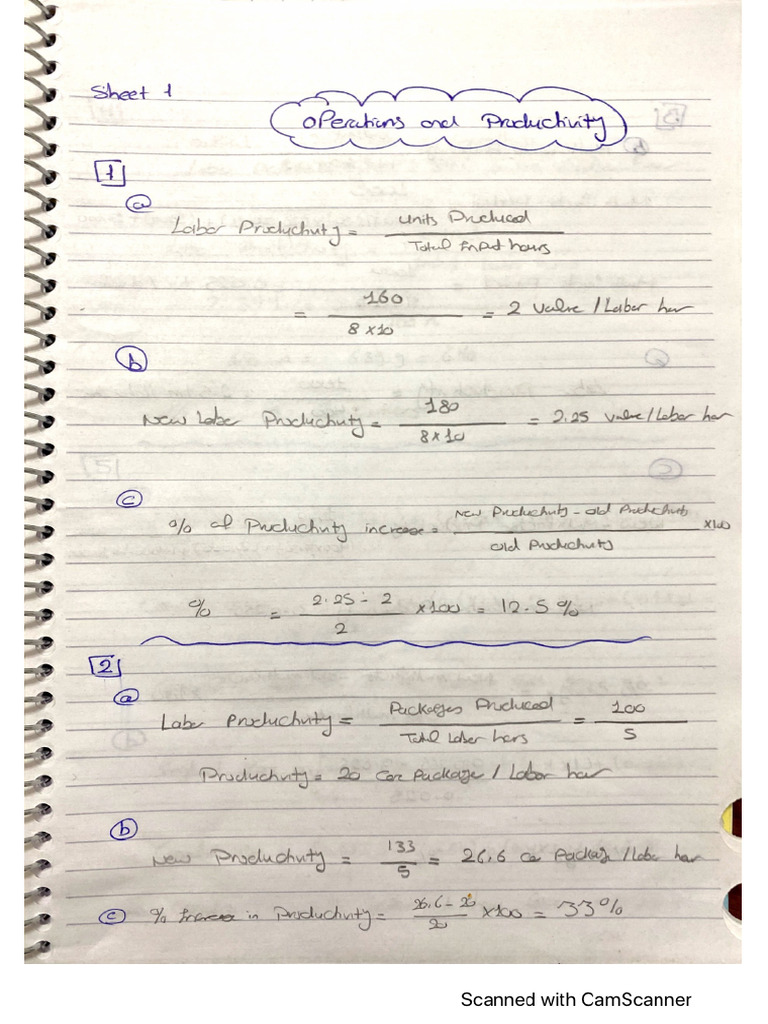 Sheet 1
Operations and Productivity
1
a
Labor Productivity = Units Produced / Total input hours
= 160 / 8 x 10 = 2 valve / Labor hour
b
New Labor Productivity = 180 / 8 x 10 = 2.25 valve / Labor hour
c
% of Productivity increase = New Productivity - old Productivity / old Productivity x 100
% = 2.25 - 2 / 2 x 100 = 12.5 %
2
a
Labor Productivity = Packages Produced / Total Labor hours = 100 / 5
Productivity = 20 Care Package / Labor hour
b
New Productivity = 133 / 5 = 26,6 Care Package / Labor hour
c % Increase in Productivity = 26.6 - 20 / 20 x 100 = 33 %
Scanned with CamScanner